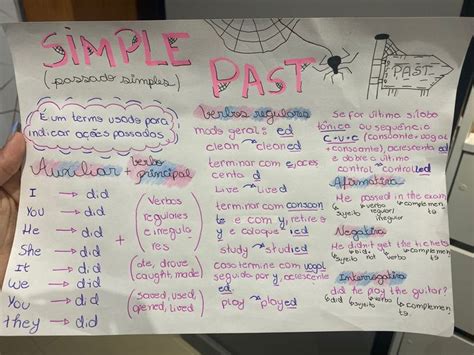 SIMPLE
(passado simples)
PAST
PAST
É um termo usado para
indicar ações passadas.
Auxiliar + verbo
principal
I → did
You → did
He → did
She → did
It → did
We → did
You → did
they → did
+
(Verbos
regulares
e irregula
res)
(ate, drove
caught, made)
(saved, used,
opened, lived)
Verbos regulares
modo geral: ed
clean → cleaned
terminar com e, acres
centa d
Live → Lived
terminar com consoan
te e com y, retire o
y e coloque ied
study → studied
caso termine com vogal
seguido por y, acrescente
ed
play → played
Se for última sílaba
tônica ou sequência
c-v-c (consoante-vogal
-consoante), acrescenta ed
e dobre o último
control → controlled
Afirmativa
He passed in the exam
sujeito verbo complemen
regular/ to
irregular
Negativa
He didn't get the tickets
sujeito not verbo complemen
to
Interrogativa
did he play the guitar?
did sujeito verbo complemen
to